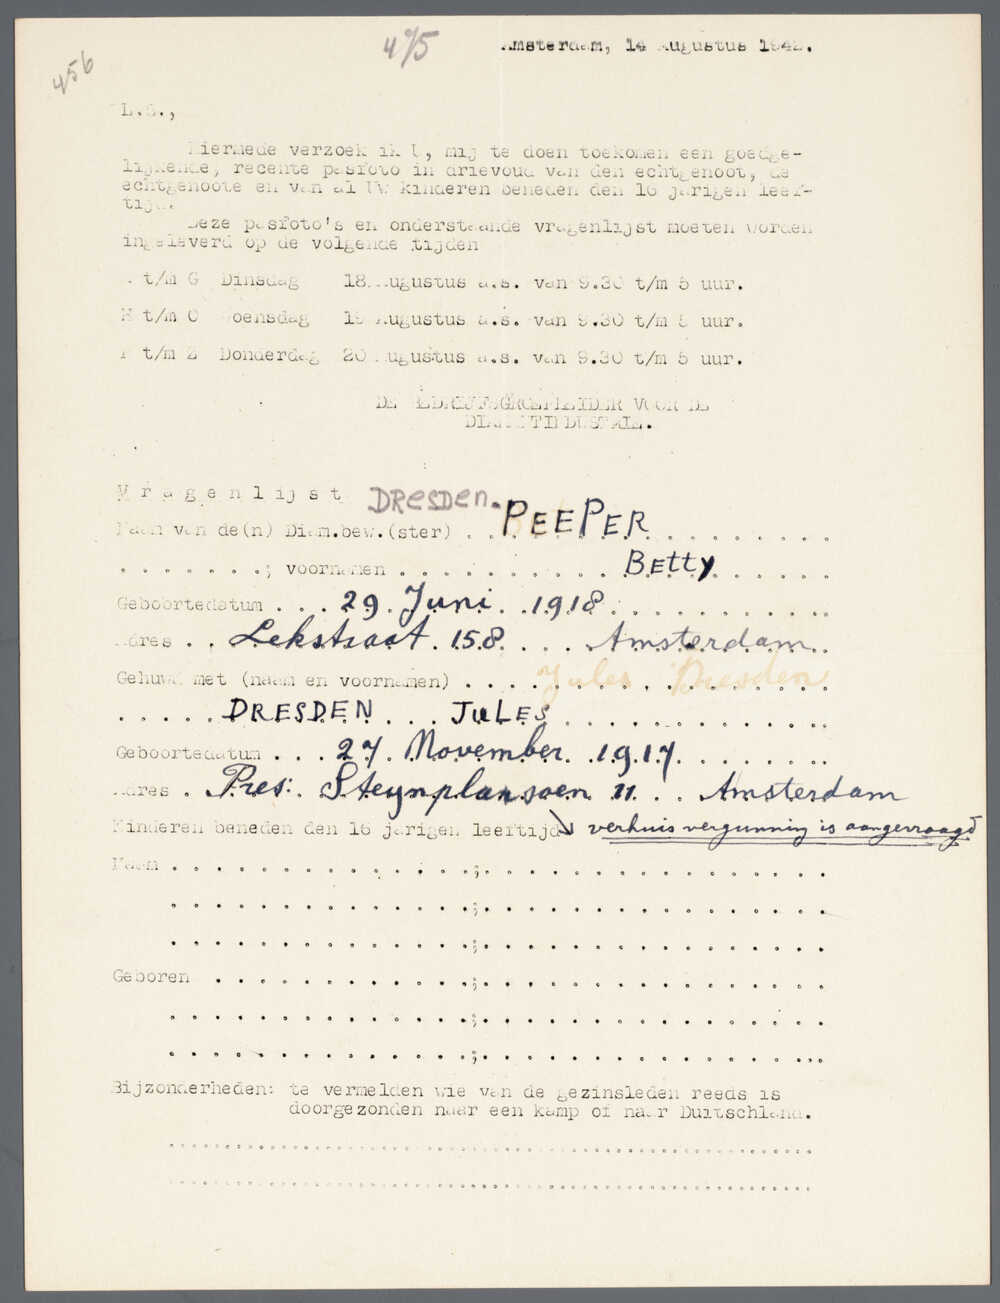 456
475
Amsterdam, 14 Augustus 1942.
L.S.,
Hiermede verzoek ik U, mij te doen toekomen een goedge-
lijkende, recente pasfoto in drievoud van den echtgenoot, de
echtgenoote en van al Uw kinderen beneden den 16 jarigen leef-
tijd.
Deze pasfoto's en onderstaande vragenlijst moeten worden
ingeleverd op de volgende tijden
A t/m G Dinsdag 18 Augustus a.s. van 9.30 t/m 5 uur.
H t/m O Woensdag 19 Augustus a.s. van 9.30 t/m 5 uur.
P t/m Z Donderdag 20 Augustus a.s. van 9.30 t/m 5 uur.
DE BEDRIJFSGROEPLEIDER VOOR DE
DIAMANTINDUSTRIE.
Vragenlijst DRESDEN.
Naam van de(n) Diam.bew.(ster) . . PEEPER
. . . . . . .; voornamen . . . . . . . . . . . Betty
Geboortedatum . . . 29 Juni . . 1918
Adres . . Lekstraat 158 . . . . Amsterdam
Gehuwd met (naam en voornamen) . . . . Jules Dresden
. . . . . DRESDEN . . . JULES
Geboortedatum . . . 27 November 1917
Adres . Pres: Steynplansoen 11 . . Amsterdam
Kinderen beneden den 16 jarigen leeftijd verhuis vergunning is aangevraagd
Naam . . . . . . . . . . . . . . ; . . . . . . . . . . . . . . . .
. . . . . . . . . . . . . . ; . . . . . . . . . . . . . . . .
. . . . . . . . . . . . . . ; . . . . . . . . . . . . . . . .
Geboren . . . . . . . . . . . . ; . . . . . . . . . . . . . . . .
. . . . . . . . . . . . . . ; . . . . . . . . . . . . . . . .
. . . . . . . . . . . . . . ; . . . . . . . . . . . . . . . .
Bijzonderheden: te vermelden wie van de gezinsleden reeds is
doorgezonden naar een kamp of naar Duitschland.